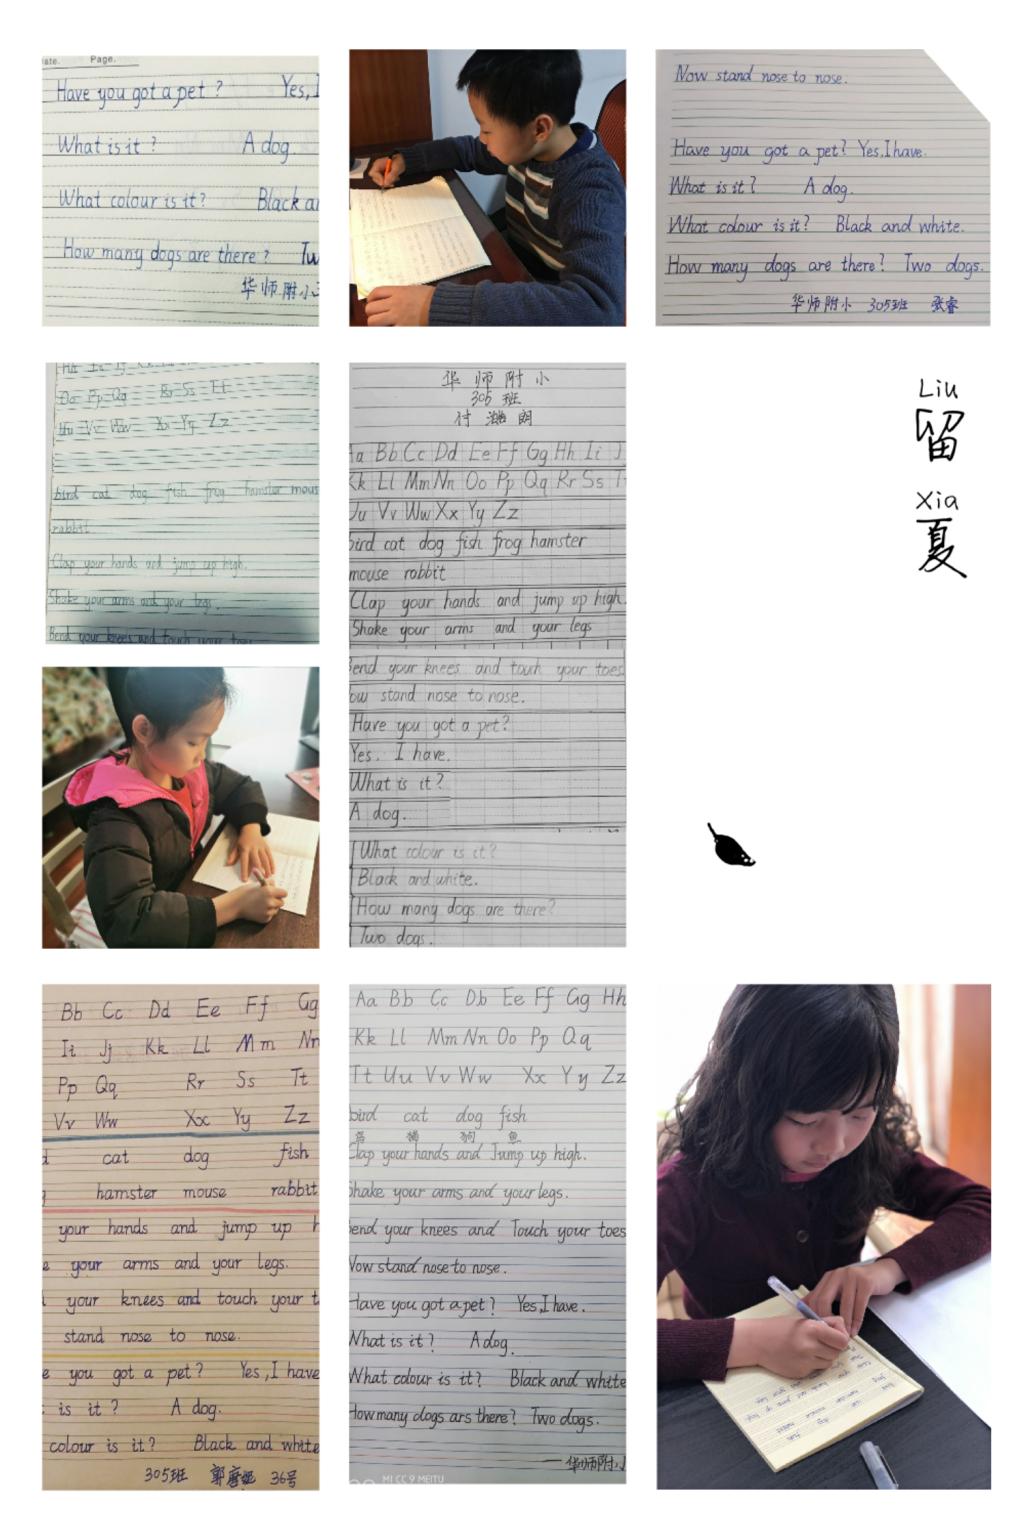 ate. Page.
Have you got a pet ? Yes, I
What is it ? A dog.
What colour is it ? Black a
How many dogs are there ? Tw
华师附小
Now stand nose to nose.
Have you got a pet? Yes,I have.
What is it? A dog.
What colour is it? Black and white.
How many dogs are there? Two dogs.
华师附小 305班 张睿
Oo Pp Qq Rr Ss Tt
Uu Vv Ww Xx Yy Zz
bird cat dog fish frog hamster mous
rabbit
Clap your hands and jump up high.
Shake your arms and your legs.
Bend your knees and touch your toes
华师附小
305班
付 朗
a Bb Cc Dd Ee Ff Gg Hh Ii J
Kk Ll Mm Nn Oo Pp Qq Rr Ss T
Uu Vv Ww Xx Yy Zz
bird cat dog fish frog hamster
mouse rabbit
Clap your hands and jump up high.
Shake your arms and your legs
Bend your knees and touch your toes
ow stand nose to nose.
Have you got a pet?
Yes. I have.
What is it?
A dog.
What colour is it?
Black and white.
How many dogs are there?
Two dogs.
Liu
留
Xia
夏
Bb Cc Dd Ee Ff Gg
Ii Jj Kk Ll Mm Nn
Pp Qq Rr Ss Tt
Vv Ww Xx Yy Zz
d cat dog fish
g hamster mouse rabbit
your hands and jump up h
e your arms and your legs.
d your knees and touch your t
stand nose to nose.
e you got a pet? Yes,I have
t is it? A dog.
colour is it? Black and white
305班 郭 36号
Aa Bb Cc Db Ee Ff Gg Hh
Kk Ll Mm Nn Oo Pp Qq
Tt Uu Vv Ww Xx Yy Zz
bird cat dog fish
鸟 猫 狗 鱼
Clap your hands and Jump up high.
Shake your arms and your legs.
Bend your knees and Touch your toes
Now stand nose to nose.
Have you got a pet? Yes,I have.
What is it? A dog.
What colour is it? Black and white
How many dogs ars there? Two dogs.
一华师附小
MI CC 9 MEITU